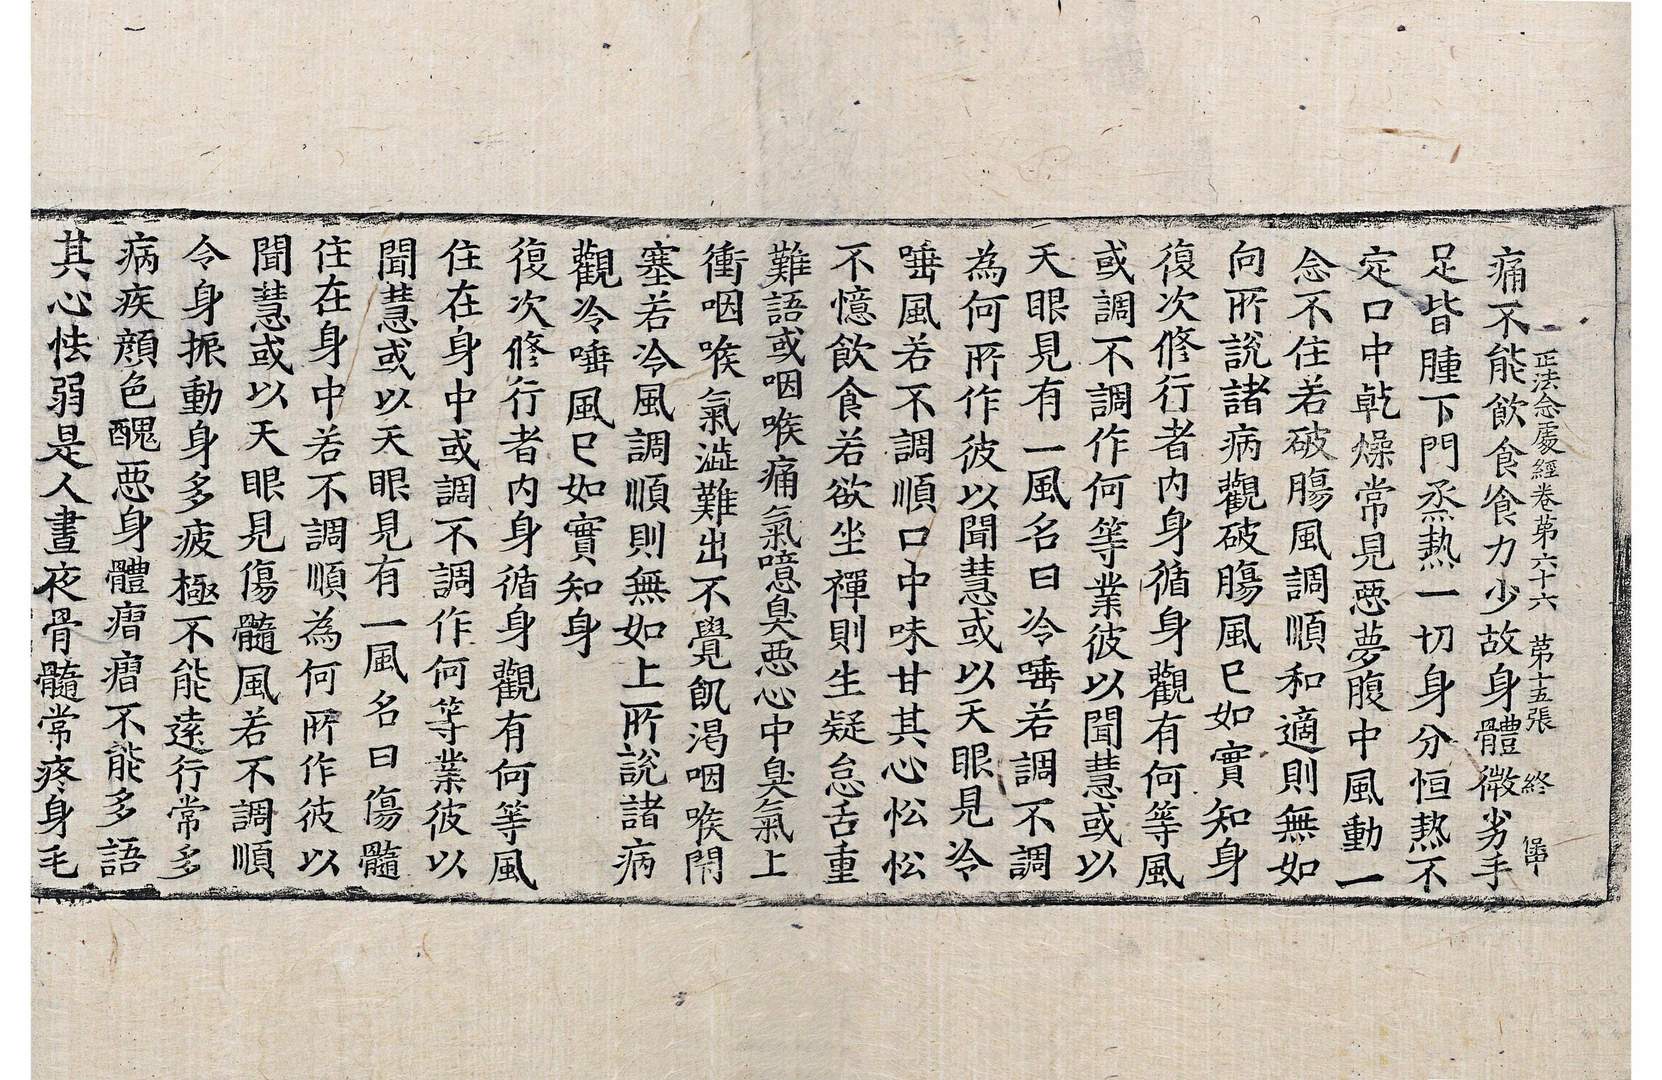 正法念處經卷第六十六 第十五張 終
痛不能飲食食力少故身體微劣手
足皆腫下門烝熱一切身分恒熱不
定口中乾燥常見惡夢腹中風動一
念不住若破腸風調順和適則無如
向所說諸病觀破腸風已如實知身
復次修行者内身循身觀有何等風
或調不調作何等業彼以聞慧或以
天眼見有一風名曰冷唾若調不調
為何所作彼以聞慧或以天眼見冷
唾風若不調順口中味甘其心忪忪
不憶飲食若欲坐禪則生疑怠舌重
難語或咽喉痛氣噫臭惡心中臭氣上
衝咽喉氣澁難出不覺飢渴咽喉閇
塞若冷風調順則無如上所說諸病
觀冷唾風已如實知身
復次修行者内身循身觀有何等風
住在身中或調不調作何等業彼以
聞慧或以天眼見有一風名曰傷髓
住在身中若不調順為何所作彼以
聞慧或以天眼見傷髓風若不調順
令身振動身多疲極不能遠行常多
病疾顔色醜惡身體瘤瘤不能多語
其心怯弱是人晝夜骨髓常疼身毛